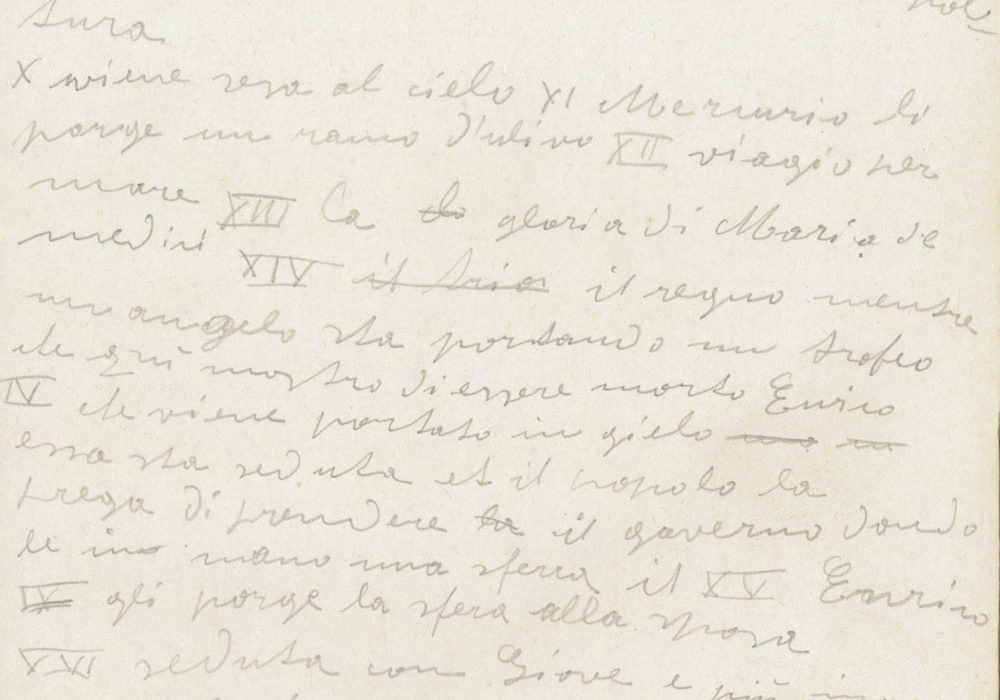 tura
X viene resa al cielo XI Mercurio li
porge un ramo d'ulivo XII viagio per
mare XIII la lo gloria di Maria de
medici XIV il trio il regno mentre
un angelo sta portando un trofeo
che mostro di essere morto Enrico
IV che viene portato in gielo
essa sta seduta et il popolo la
prega di prendere la il governo dando
le in mano una sferra il XV Enrico
IV gli porge la sfera alla sposa
XVI seduta con Giove e più in